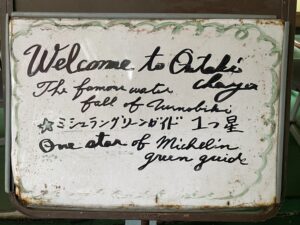 Welcome to Ontaki
chaya
The famous water
fall of Nunobiki
☆ミシュラングリーンガイド 1つ星
One star of Michelin
green guide